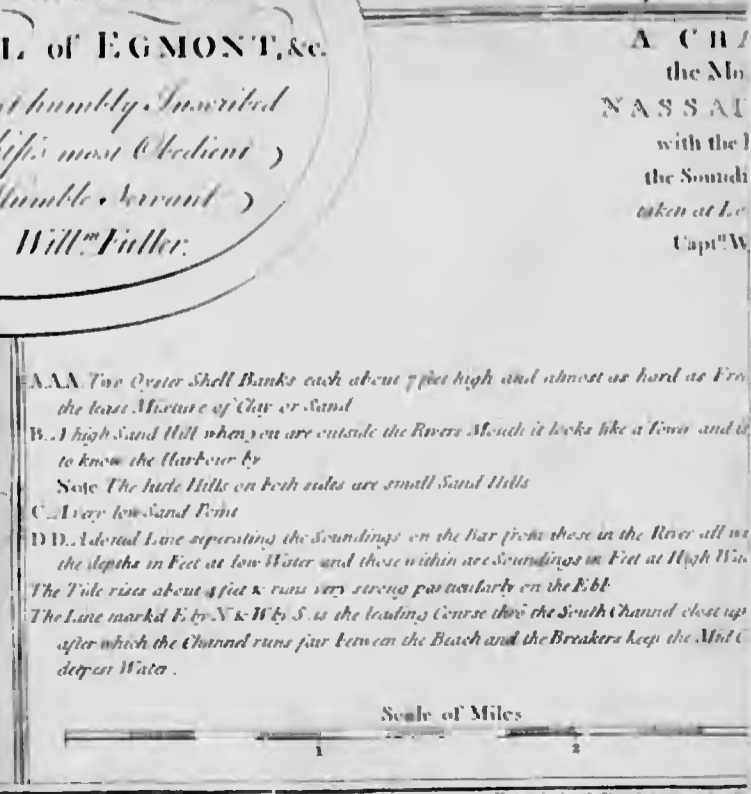 L of EGMONT, &c.
t humbly Inscribed
ship's most Obedient
Humble Servant
Will.m Fuller.
A CHA
the Mo
NASSAU
with the
the Soundi
taken at Lo
Capt.n W
A.A.A. Two Oyster Shell Banks each about 7 feet high and almost as hard as
the least Mixture of Clay or Sand
B. A high Sand Hill when you are outside the Rivers Mouth it looks like a Town and
to know the Harbour by
Note The little Hills on both sides are small Sand Hills
C. A very low Sand Point
D.D. A doted Line seperating the Soundings on the Bar from those in the River all
the depths in Feet at low Water and those within are Soundings in Feet at High Wat
The Tide rises about 4 feet & runs very strong particularly on the Ebb
The Line markd E. by N. & W. by S. is the leading Course thro' the South Channel close up
after which the Channel runs fair between the Beach and the Breakers keep the Mid C
deepest Water.
Scale of Miles
1 2